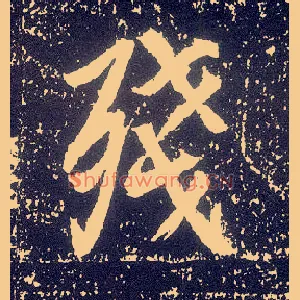 殘
Shufawang.cn